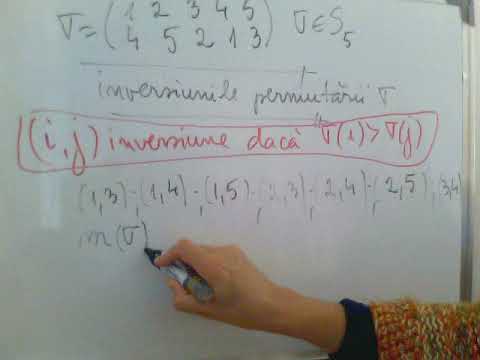 σ = ( 1 2 3 4 5 σ ∈ S₅
4 5 2 1 3 )
inversiunile permutării σ
(i,j) inversiune dacă σ(i) > σ(j)
(1,3); (1,4); (1,5); (2,3); (2,4); (2,5); (3,4)
m(σ)